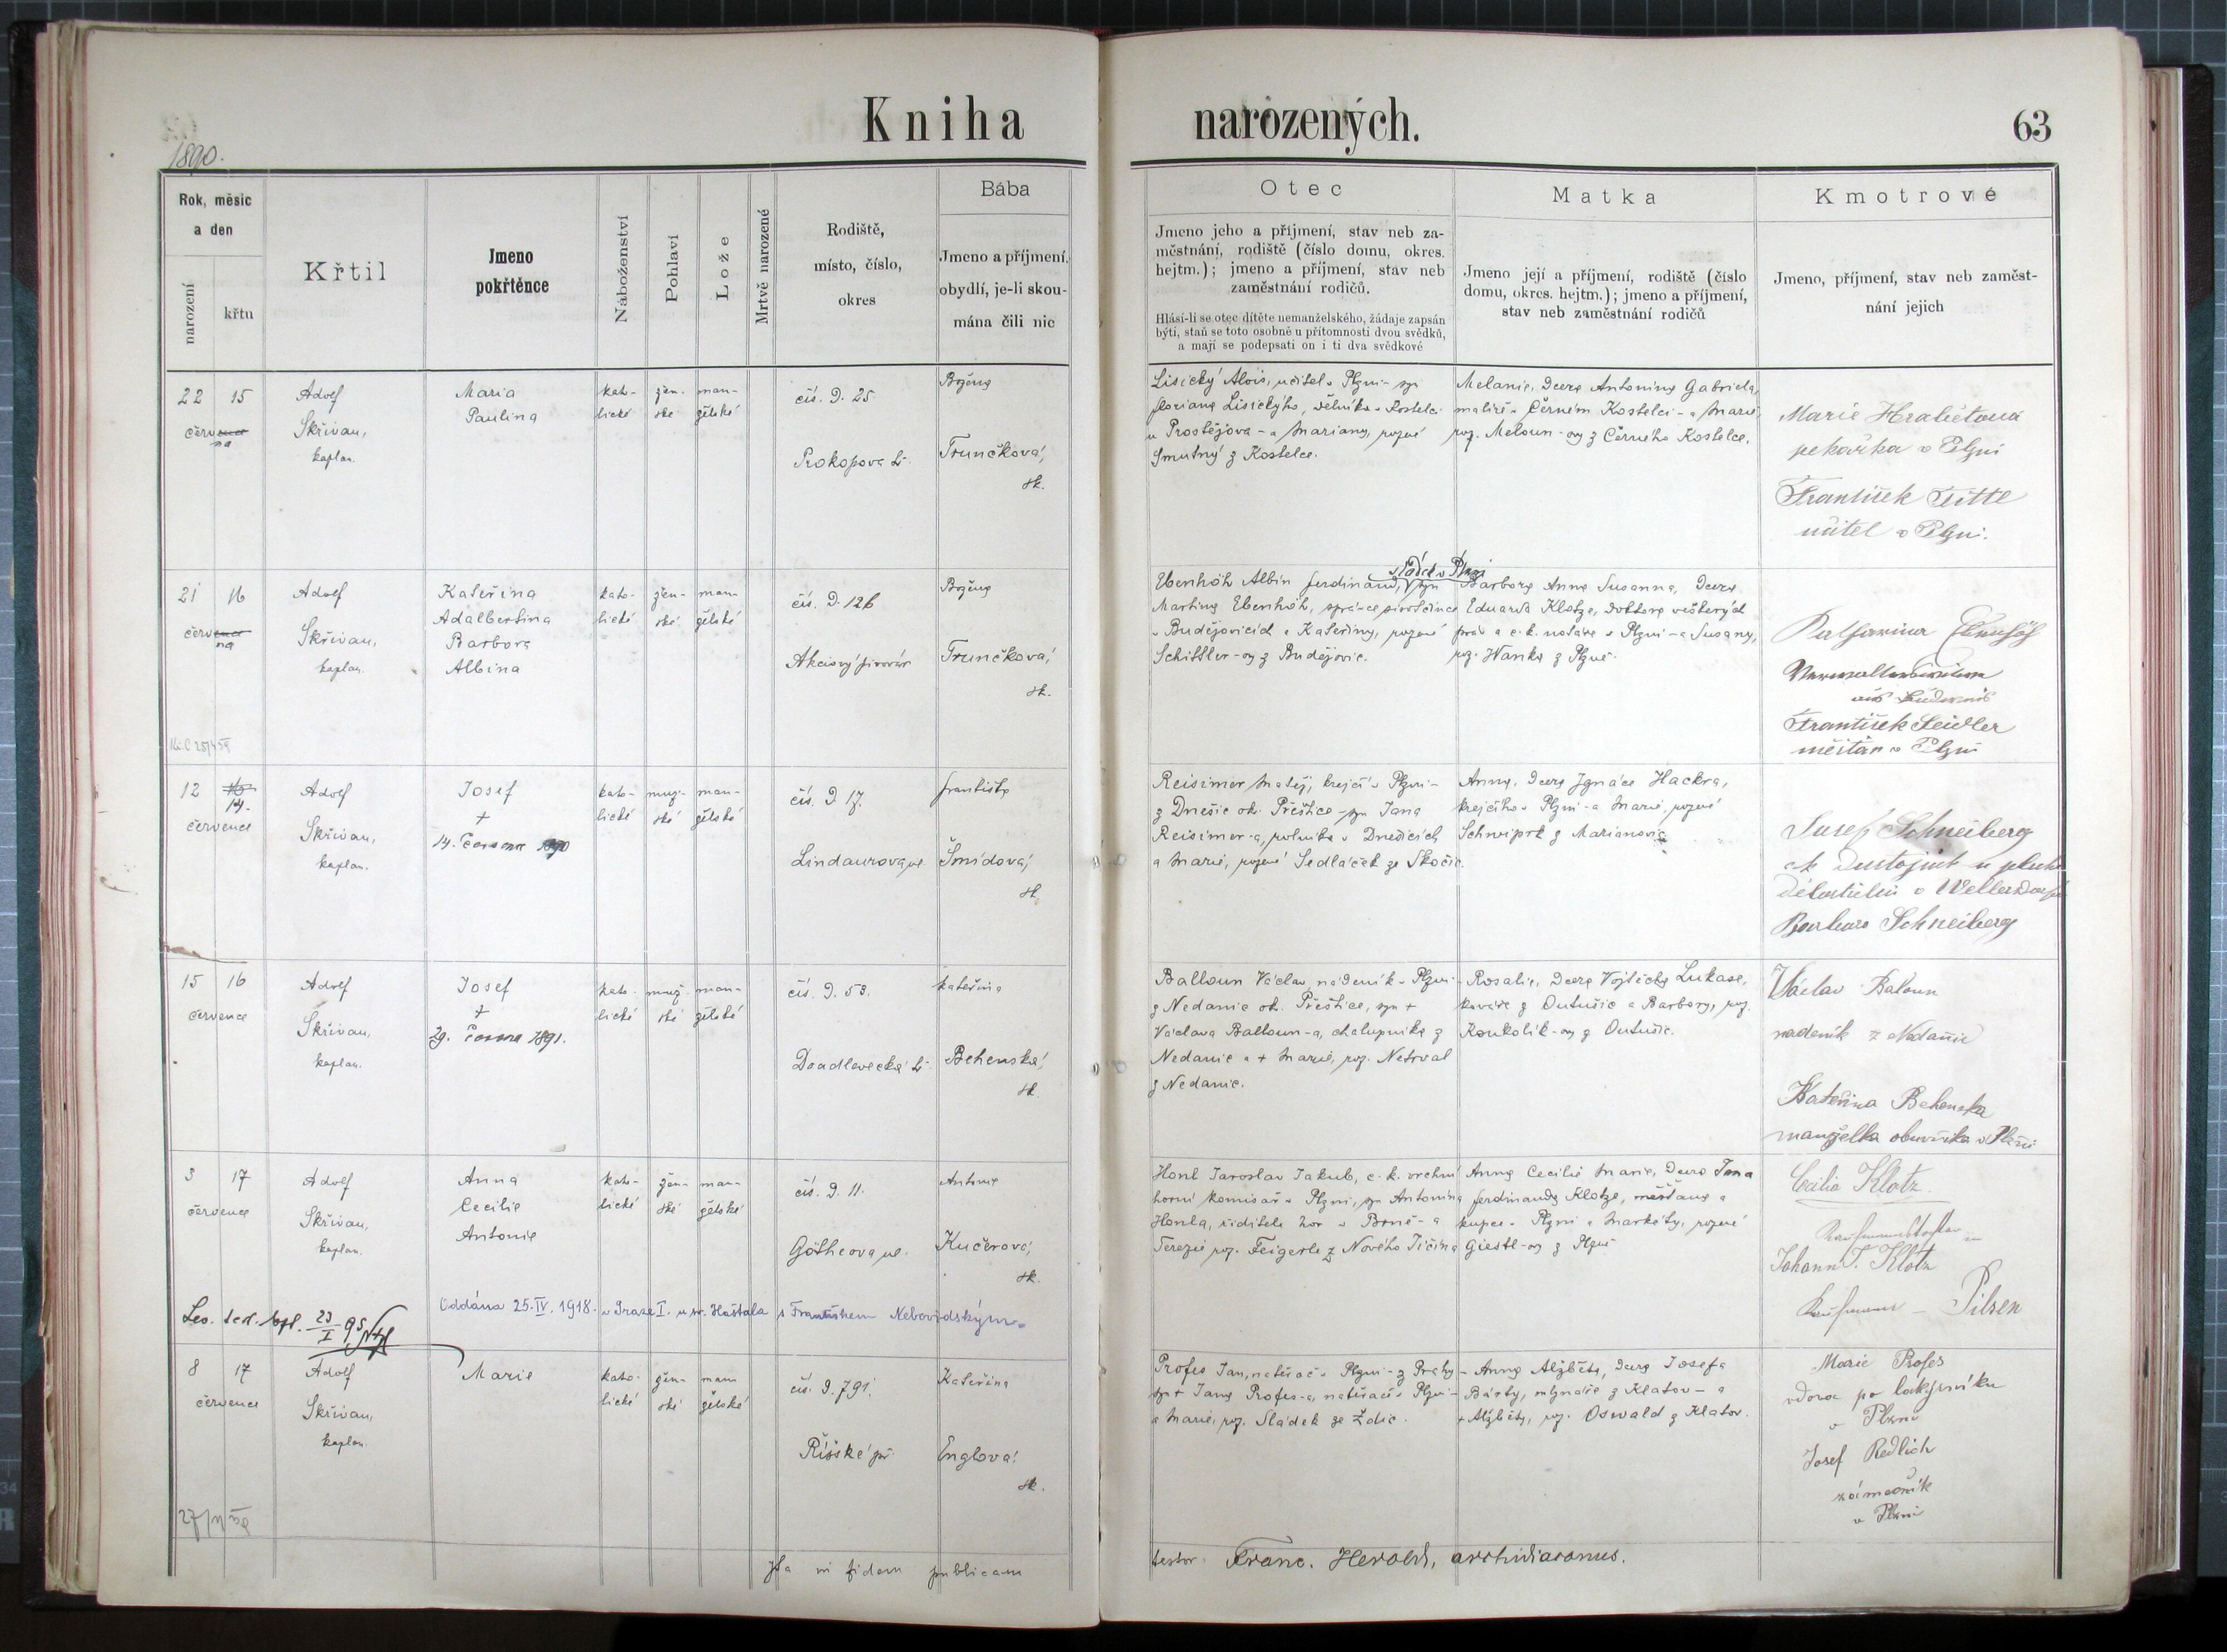 Kniha narozených.
63
1890.
Rok, měsíc
a den
narození
křtu
Křtil
Jmeno
pokřtěnce
Náboženství
Pohlaví
Lože
Mrtvě narozené
Rodiště,
místo, číslo,
okres
Bába
Jmeno a příjmení,
obydlí, je-li skou-
mána čili nic
Otec
Jmeno jeho a příjmení, stav neb za-
městnání, rodiště (číslo domu, okres.
hejtm.); jmeno a příjmení, stav neb
zaměstnání rodičů.
Hlásí-li se otec dítěte nemanželského, žádaje zapsán
býti, staň se toto osobně u přítomnosti dvou svědků,
a mají se podepsati on i ti dva svědkové
Matka
Jmeno její a příjmení, rodiště (číslo
domu, okres. hejtm.); jmeno a příjmení,
stav neb zaměstnání rodičů
Kmotrové
Jmeno, příjmení, stav neb zaměst-
nání jejich
22 15
června
Adolf
Skřivan,
kaplan.
Maria
Paulina
kato-
lické
žen-
ské
man-
želské
čís. D. 25
Prokopova tř.
Božena
Trunčková,
sk.
Lisický Alois, učitel v Plzni - syn
Floriana Lisického, dělníka v Kostelci
u Prostějova - a Mariany, rozené
Smutný z Kostelce.
Melanie, dcera Antonína Gabriela,
malíře v Černém Kostelci - a Marie,
roz. Meloun-ovy z Černého Kostelce.
Marie Hrabětová
pekařka v Plzni
František Tittl
učitel v Plzni.
21 16
června
Adolf
Skřivan,
kaplan.
Kateřina
Adalbertina
Barbora
Albina
kato-
lické
žen-
ské
man-
želské
čís. D. 126
Akciový pivovár
Božena
Trunčková,
sk.
sládek v Plzni
Ebenhöh Albin Ferdinand, syn
Martina Ebenhöh, správce pivovárnice
v Budějovicích a Kateřiny, rozené
Schiffler-ovy z Budějovic.
Barbora Anna Susanna, dcera
Eduarda Klotze, doktora veškerých
práv a c. k. notáře v Plzni - a Susany,
roz. Wanka z Plzně.
František Seidler
měšťan v Plzni
12 14.
července
Adolf
Skřivan,
kaplan.
Josef
+
14. června 1890
kato-
lické
muž-
ské
man-
želské
čís. D. 17.
Lindaurova ul.
Františka
Šmídová,
sk.
Reisimer Matěj, krejčí v Plzni -
z Dnešic ok. Přeštice - syn Jana
Reisimer-a, rolníka v Dnešicích
a Marie, rozené Sedláček ze Skočic.
Anna, dcera Ignáce Hackra,
krejčího v Plzni - a Marie, rozené
Schwiprt z Marianovic
Josef Schneiberg
Barbara Schneiberg
15 16
července
Adolf
Skřivan,
kaplan.
Josef
+
29. června 1891.
kato-
lické
muž-
ské
man-
želské
čís. D. 53.
Doudlevecká tř.
Kateřina
Behenská,
sk.
Balloun Václav, nádeník v Plzni -
z Nedanic ok. Přeštice, syn +
Václava Balloun-a, chalupníka z
Nedanic a + Marie, roz. Netrval
z Nedanic.
Rosalie, dcera Vojtěcha Lukase,
kováře z Outušic a Barbory, roz.
Koukolík-ovy z Outušic.
Václav Baloun
nadeník z Nedanic
Kateřina Behenska
manželka obuvníka v Plzni
3 17
července
Adolf
Skřivan,
kaplan.
Anna
Cecilie
Antonie
kato-
lické
žen-
ské
man-
želské
čís. D. 11.
Götheova ul.
Antonie
Kučerová,
sk.
Honl Jaroslav Jakub, c. k. vrchní
horní komisař v Plzni, syn Antonína
Honla, ředitele hor v Brně - a
Terezie roz. Feigerle z Nového Jičína
Anna Cecilie Marie, dcera Jana
Ferdinanda Klotze, měšťana a
kupce v Plzni a Markéty, rozené
Giestl-ovy z Plzně
Cecilia Klotz
Johann F. Klotz
Kaufmann - Pilsen
Oddána 25. IV. 1918. v Praze I. u sv. Haštala s Františkem Nebovidským.
8 17
července
Adolf
Skřivan,
kaplan.
Marie
kato-
lické
žen-
ské
man-
želské
čís. D. 791.
Říšské př.
Kateřina
Englová,
sk.
Profes Jan, natěrač v Plzni - z Prahy -
syn + Jana Profes-a, natěrače v Plzni -
a Marie, roz. Sládek ze Zdic.
Anna Alžběta, dcera Josefa
Bárty, mlynáře z Klatov - a
+ Alžběty, roz. Oswald z Klatov.
Marie Profes
vdova po lakýrníku
v Plzni
Josef Redlich
zámečník
v Plzni
Ita in fidem publicam
testor Franc. Herold, archidiaconus.